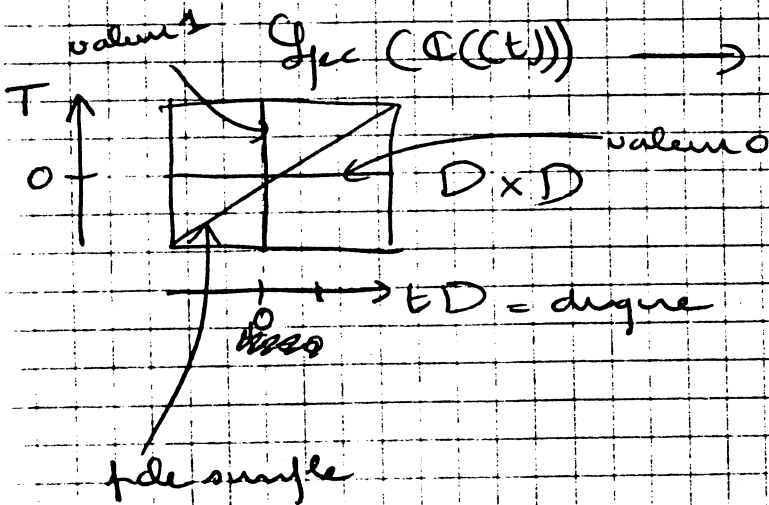 valeur 1
Spec (ℂ((t))) ⟶
T
valeur 0
0
D × D
t D = disque
0
pole simple